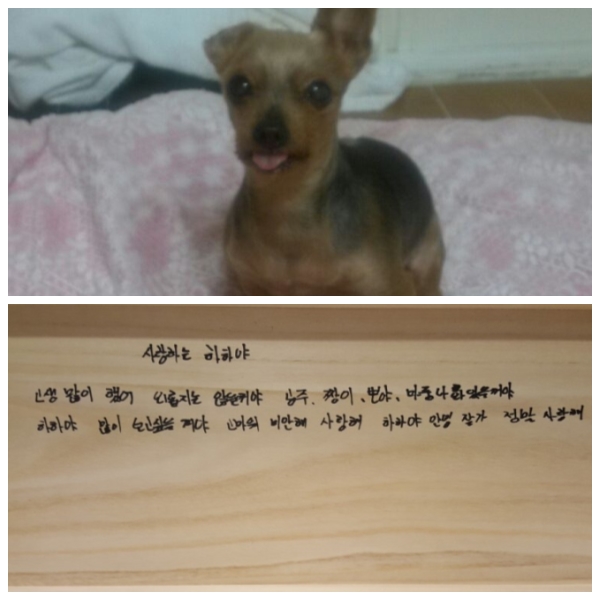 사랑하는 하하야
고생 많이 했어 외롭지는 않을꺼야 공주. 짱이. 뽀야. 마중나와있을꺼야
하하야 많이 보고싶을꺼야 고마워 미안해 사랑해 하하야 안녕 잘가 정말 사랑해